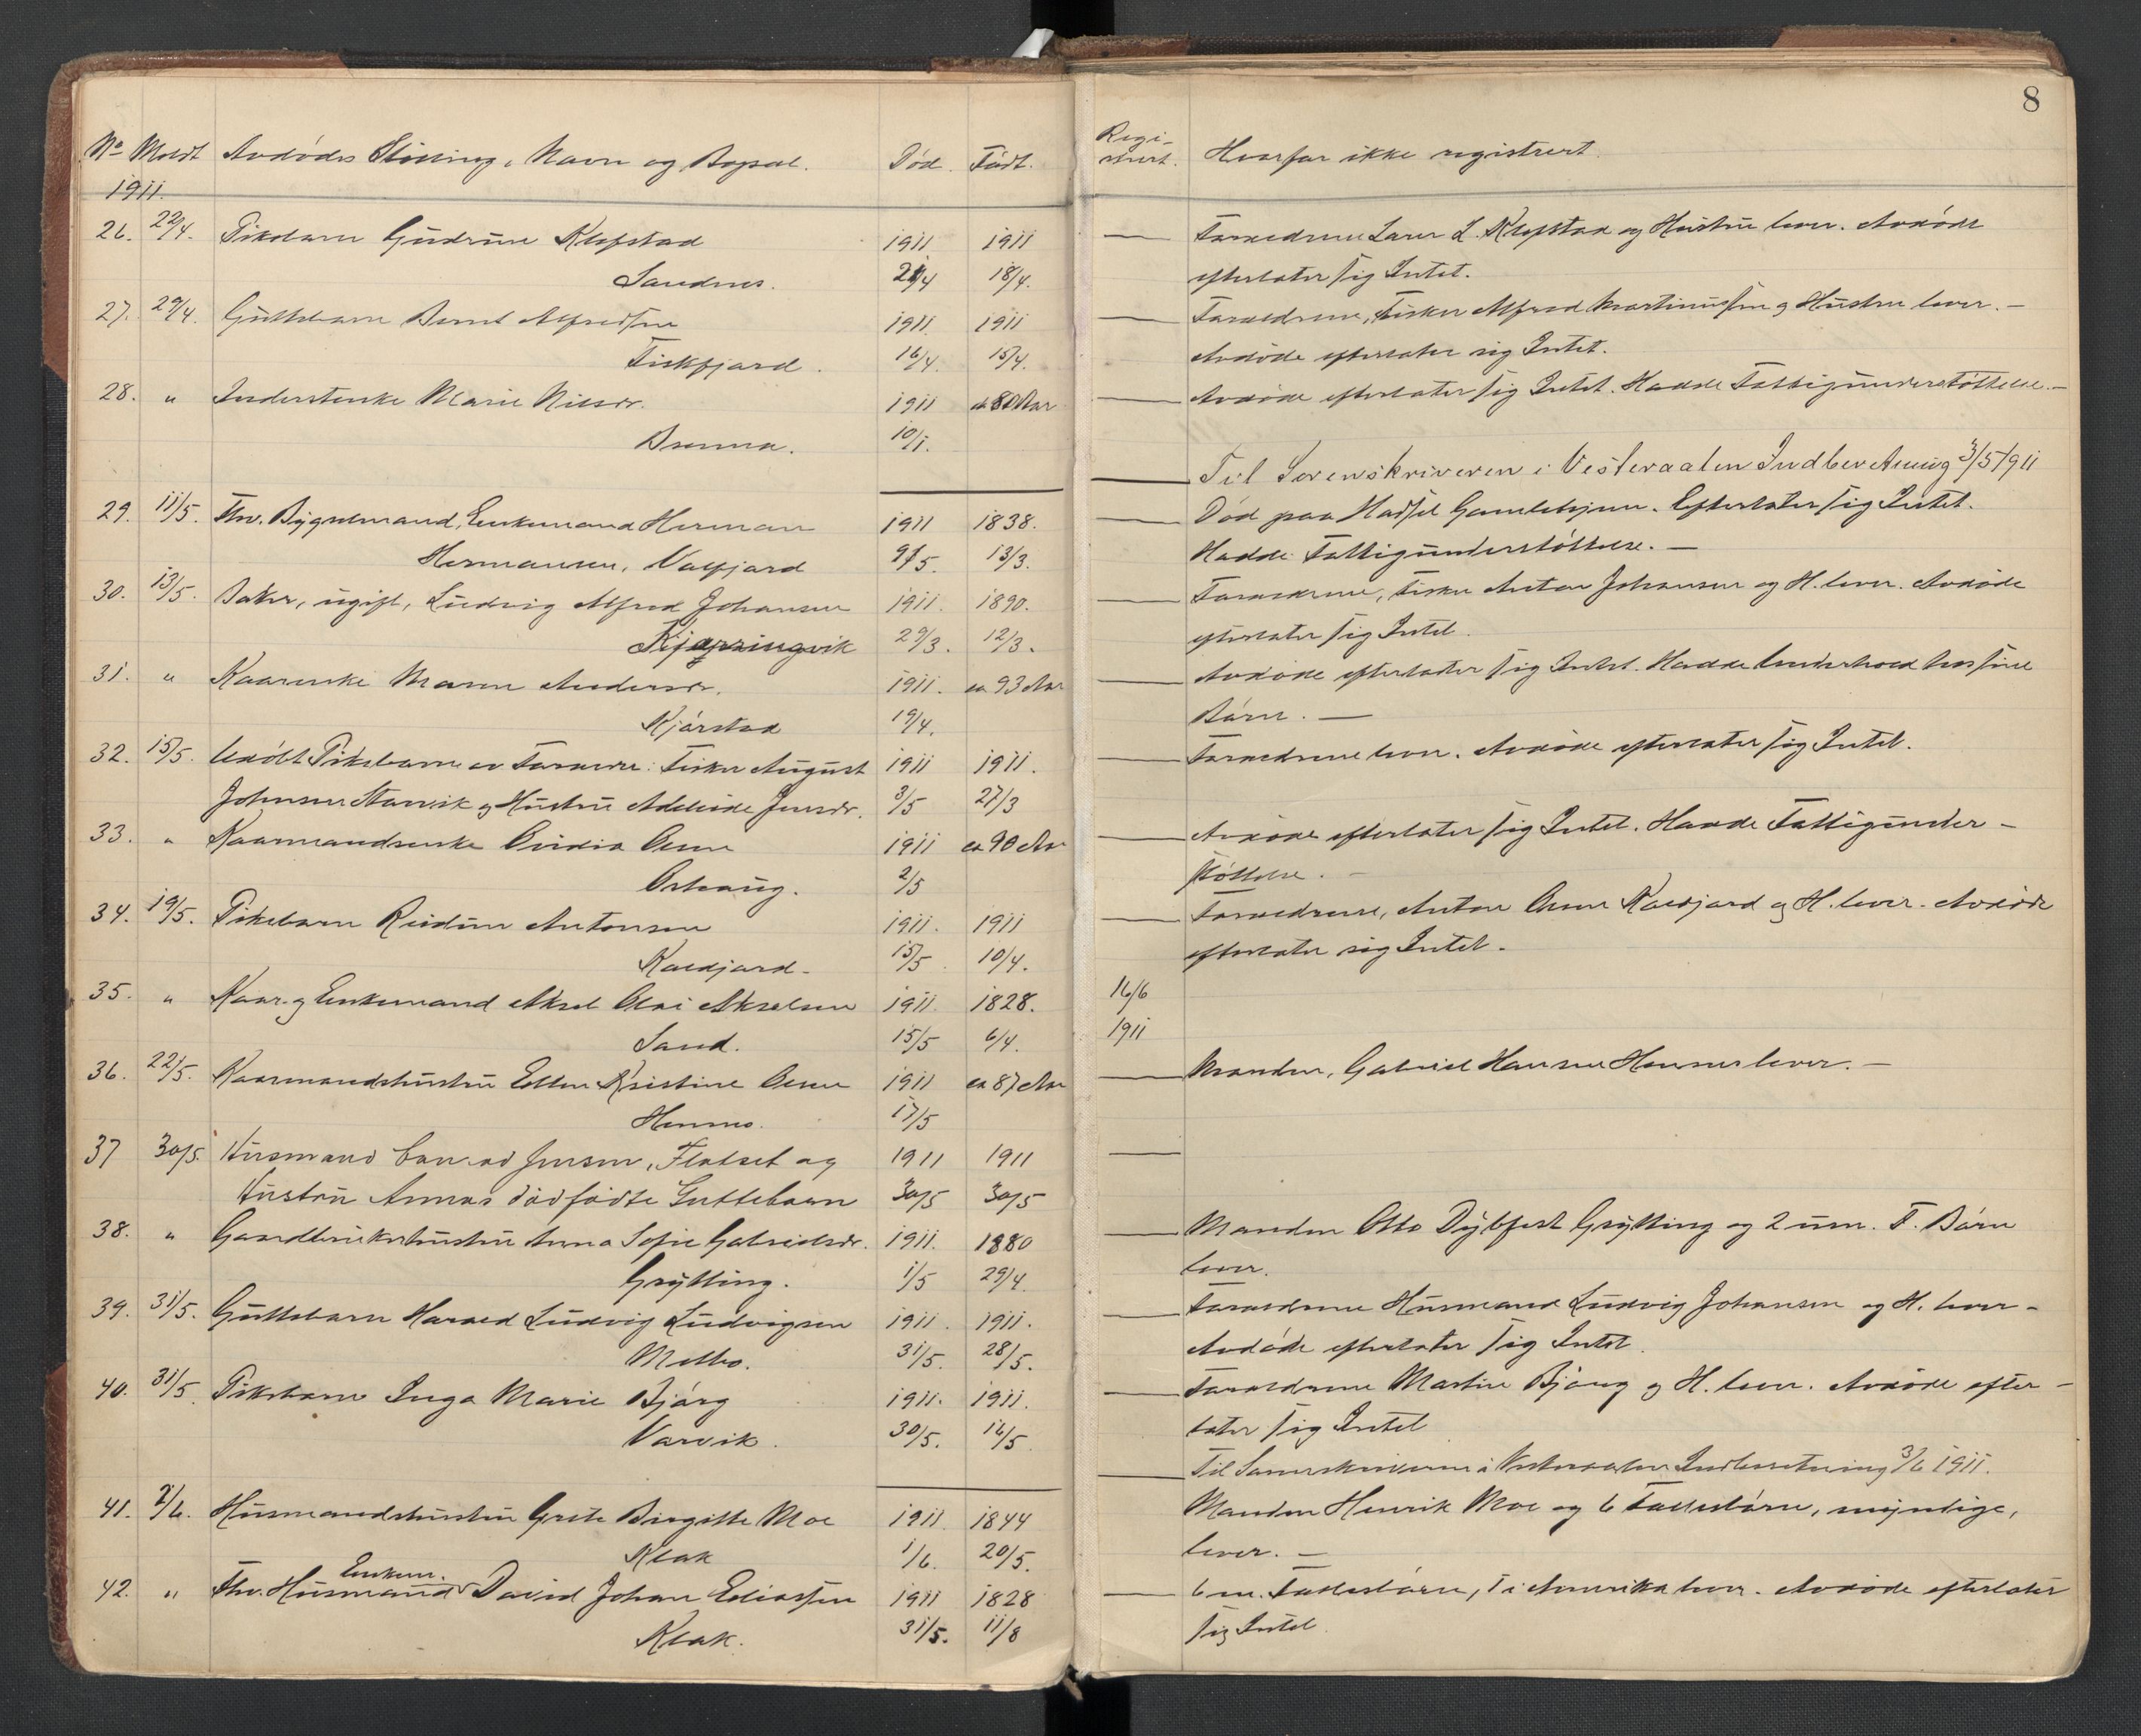 8
No Meldt Avdödes Stilling, Navn og Bopæl. Död. Födt.
1911.
26. 22/4. Pikebarn Gudrun Klepstad 1911 1911
Sandnes. 21/4 18/4.
27. 29/4. Guttebarn Bernt Alfredsen 1911 1911
Fiskfjord. 16/4. 15/4.
28. " Inderstenke Marie Nilsdr. 1911 ca 80 Aar
Bremna. 10/1.
29. 11/5. Fhv. Bygselmand, Enkemand Herman 1911 1838.
Hermansen, Valfjord 9/5. 13/3.
30. 13/5. Baker, ugift, Ludvig Alfred Johansen 1911. 1890.
Kjerringvik 29/3. 12/3.
31. " Kaarenke Maren Andersdr. 1911. ca 93 Aar
Kjörstad 19/4.
32. 15/5. Udöbt Pikebarn av Forældre: Fisker August 1911 1911.
Johnsen Starvik og Hustru Adelaide Jensdr. 3/5 27/3
33. " Kaarmandsenke Ovidia Olsen 1911 ca 90 Aar
Oshaug. 2/5
34. 19/5. Pikebarn Reidun Antonsen 1911. 1911
Kaldjord. 15/5. 10/4.
35. " Kaar- og Enkemand Aksel Olai Akselsen 1911. 1828.
Sand. 15/5 6/4.
36. 22/5. Kaarmandshustru Ellen Kristine Olsen 1911 ca 87 Aar
Hennes. 17/5
37 30/5. Husmand Conrad Jensen, Flatset og 1911 1911
Hustru Annas dödfödte Guttebarn 30/5 30/5
38. " Gaardbrukerhustru Anna Sofie Gabrielsdr. 1911. 1880
Grytting. 1/5 29/4.
39. 31/5. Guttebarn Harald Ludvig Ludvigsen 1911. 1911.
Melbo. 31/5. 28/5.
40. 31/5. Pikebarn Inga Marie Bjórg 1911. 1911.
Varvik. 30/5. 16/5.
41. 2/6. Husmandshustru Grete Birgitte Moe 1911. 1844
Klak 1/6. 20/5.
Enkem.
42. " Fhv. Husmand David Johan Eliassen 1911 1828
Klak. 31/5. 11/8
Regi-
strert. Hvorfor ikke registrert.
Forældrene Lærer L. Klepstad og Hustru lever. Avdöde
efterlater sig Intet.
Forældrene, Fisker Alfred Martinussen og Hustru lever. —
Avdöde efterlater sig Intet.
Avdöde efterlater sig Intet. Hadde Fattigunderstöttelse. —
Til Sorenskriveren i Vesteraalen Indberetning 3/5 1911
Död paa Hadsel Gamlehjem. Efterlater sig Intet.
Hadde Fattigunderstöttelse. —
Forældrene, Fisker Anton Johansen og H. lever. Avdöde
efterlater sig Intet.
Avdöde efterlater sig Intet. Hadde Underhold hos sine
Börn. —
Forældrene lever. Avdöde efterlater sig Intet.
Avdöde efterlater sig Intet. Havde Fattigunder-
støttelse. —
Forældrene, Anton Olsen Kaldjord og H. lever. Avdöde
efterlater sig Intet.
16/6
1911
Manden, Gabriel Hansen Hennes lever. —
Manden Otto Dybfest Grytting og 2 um. F. Börn
lever.
Forældrene Husmand Ludvig Johansen og H. lever.
Avdöde efterlater sig Intet.
Forældrene Martin Bjórg og H. lever. Avdöde efter-
later sig Intet
Til Sorenskriveren i Vesteraalen Indberetning 3/6 1911.
Manden Henrik Moe og 6 Fællesbörn, myndige,
lever. —
6 m. Fællesbörn, 1 i Amerika lever. Avdöde efterlater
sig Intet.